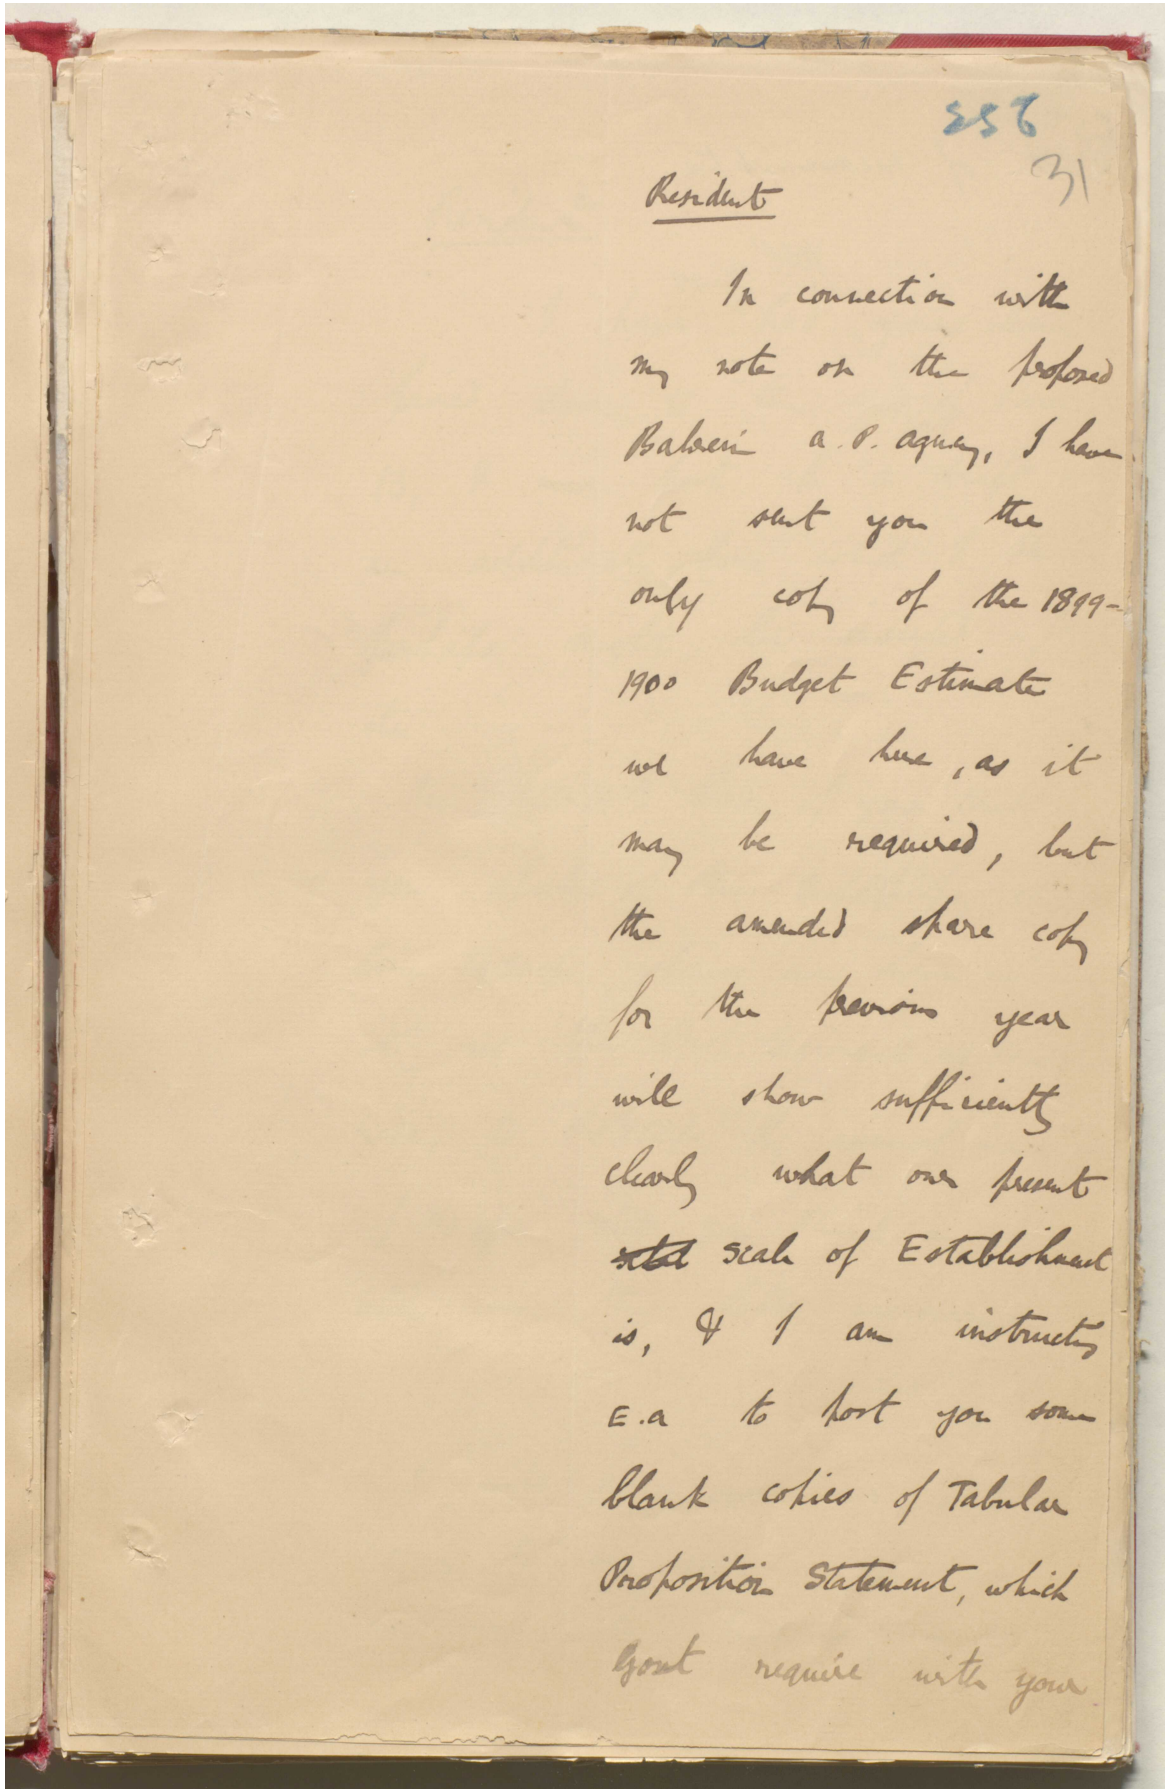 256
31
Resident
In connection with
my note on the proposed
Bahrein A.P. Agency, I have
not sent you the
only copy of the 1899-
1900 Budget Estimate
we have here, as it
may be required, but
the amended spare copy
for the previous year
will show sufficiently
clearly what our present
scale of Establishment
is, & I am instructing
E.A to post you some
blank copies of Tabular
Proposition Statement, which
Govt require with your